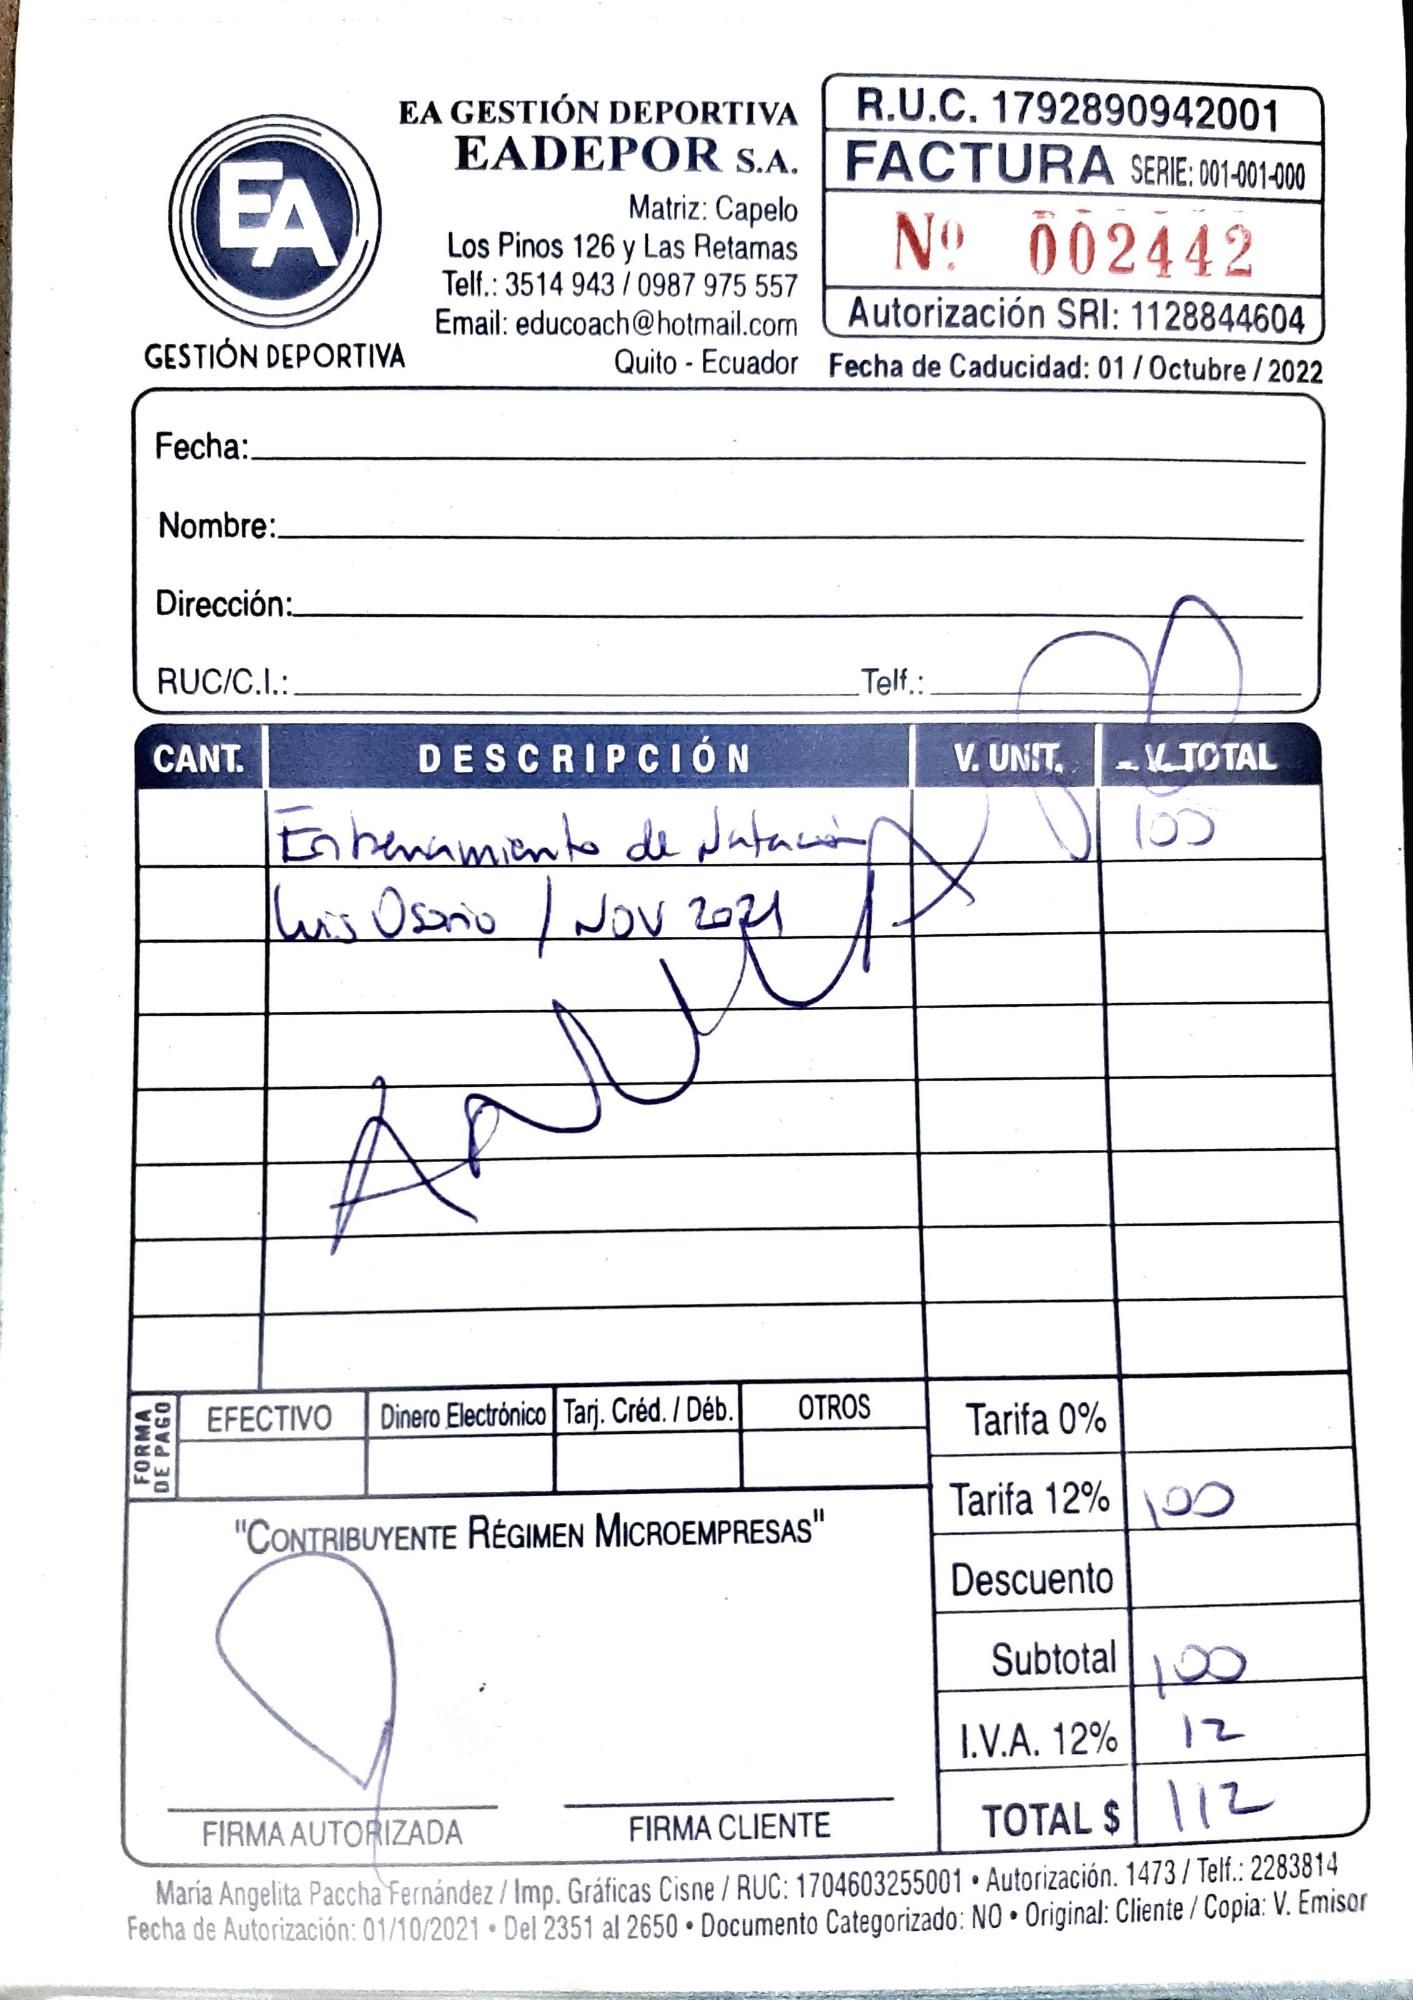 EA GESTIÓN DEPORTIVA
EADEPOR S.A.
Matriz: Capelo
Los Pinos 126 y Las Retamas
Telf.: 3514 943 / 0987 975 557
Email: educoach@hotmail.com
Quito - Ecuador
EA
GESTIÓN DEPORTIVA
R.U.C. 1792890942001
FACTURA SERIE: 001-001-000
Nº 002442
Autorización SRI: 1128844604
Fecha de Caducidad: 01 / Octubre / 2022
Fecha:
Nombre:
Dirección:
RUC/C.I.: Telf.:
CANT. DESCRIPCIÓN V. UNIT. V. TOTAL
Entrenamiento de Natación 100
Luis Osorio / NOV 2021
ANULADO
FORMA DE PAGO
EFECTIVO Dinero Electrónico Tarj. Créd. / Déb. OTROS
Tarifa 0%
Tarifa 12% 100
Descuento
Subtotal 100
I.V.A. 12% 12
TOTAL $ 112
"CONTRIBUYENTE RÉGIMEN MICROEMPRESAS"
FIRMA AUTORIZADA FIRMA CLIENTE
María Angelita Paccha Fernández / Imp. Gráficas Cisne / RUC: 1704603255001 • Autorización. 1473 / Telf.: 2283814
Fecha de Autorización: 01/10/2021 • Del 2351 al 2650 • Documento Categorizado: NO • Original: Cliente / Copia: V. Emisor